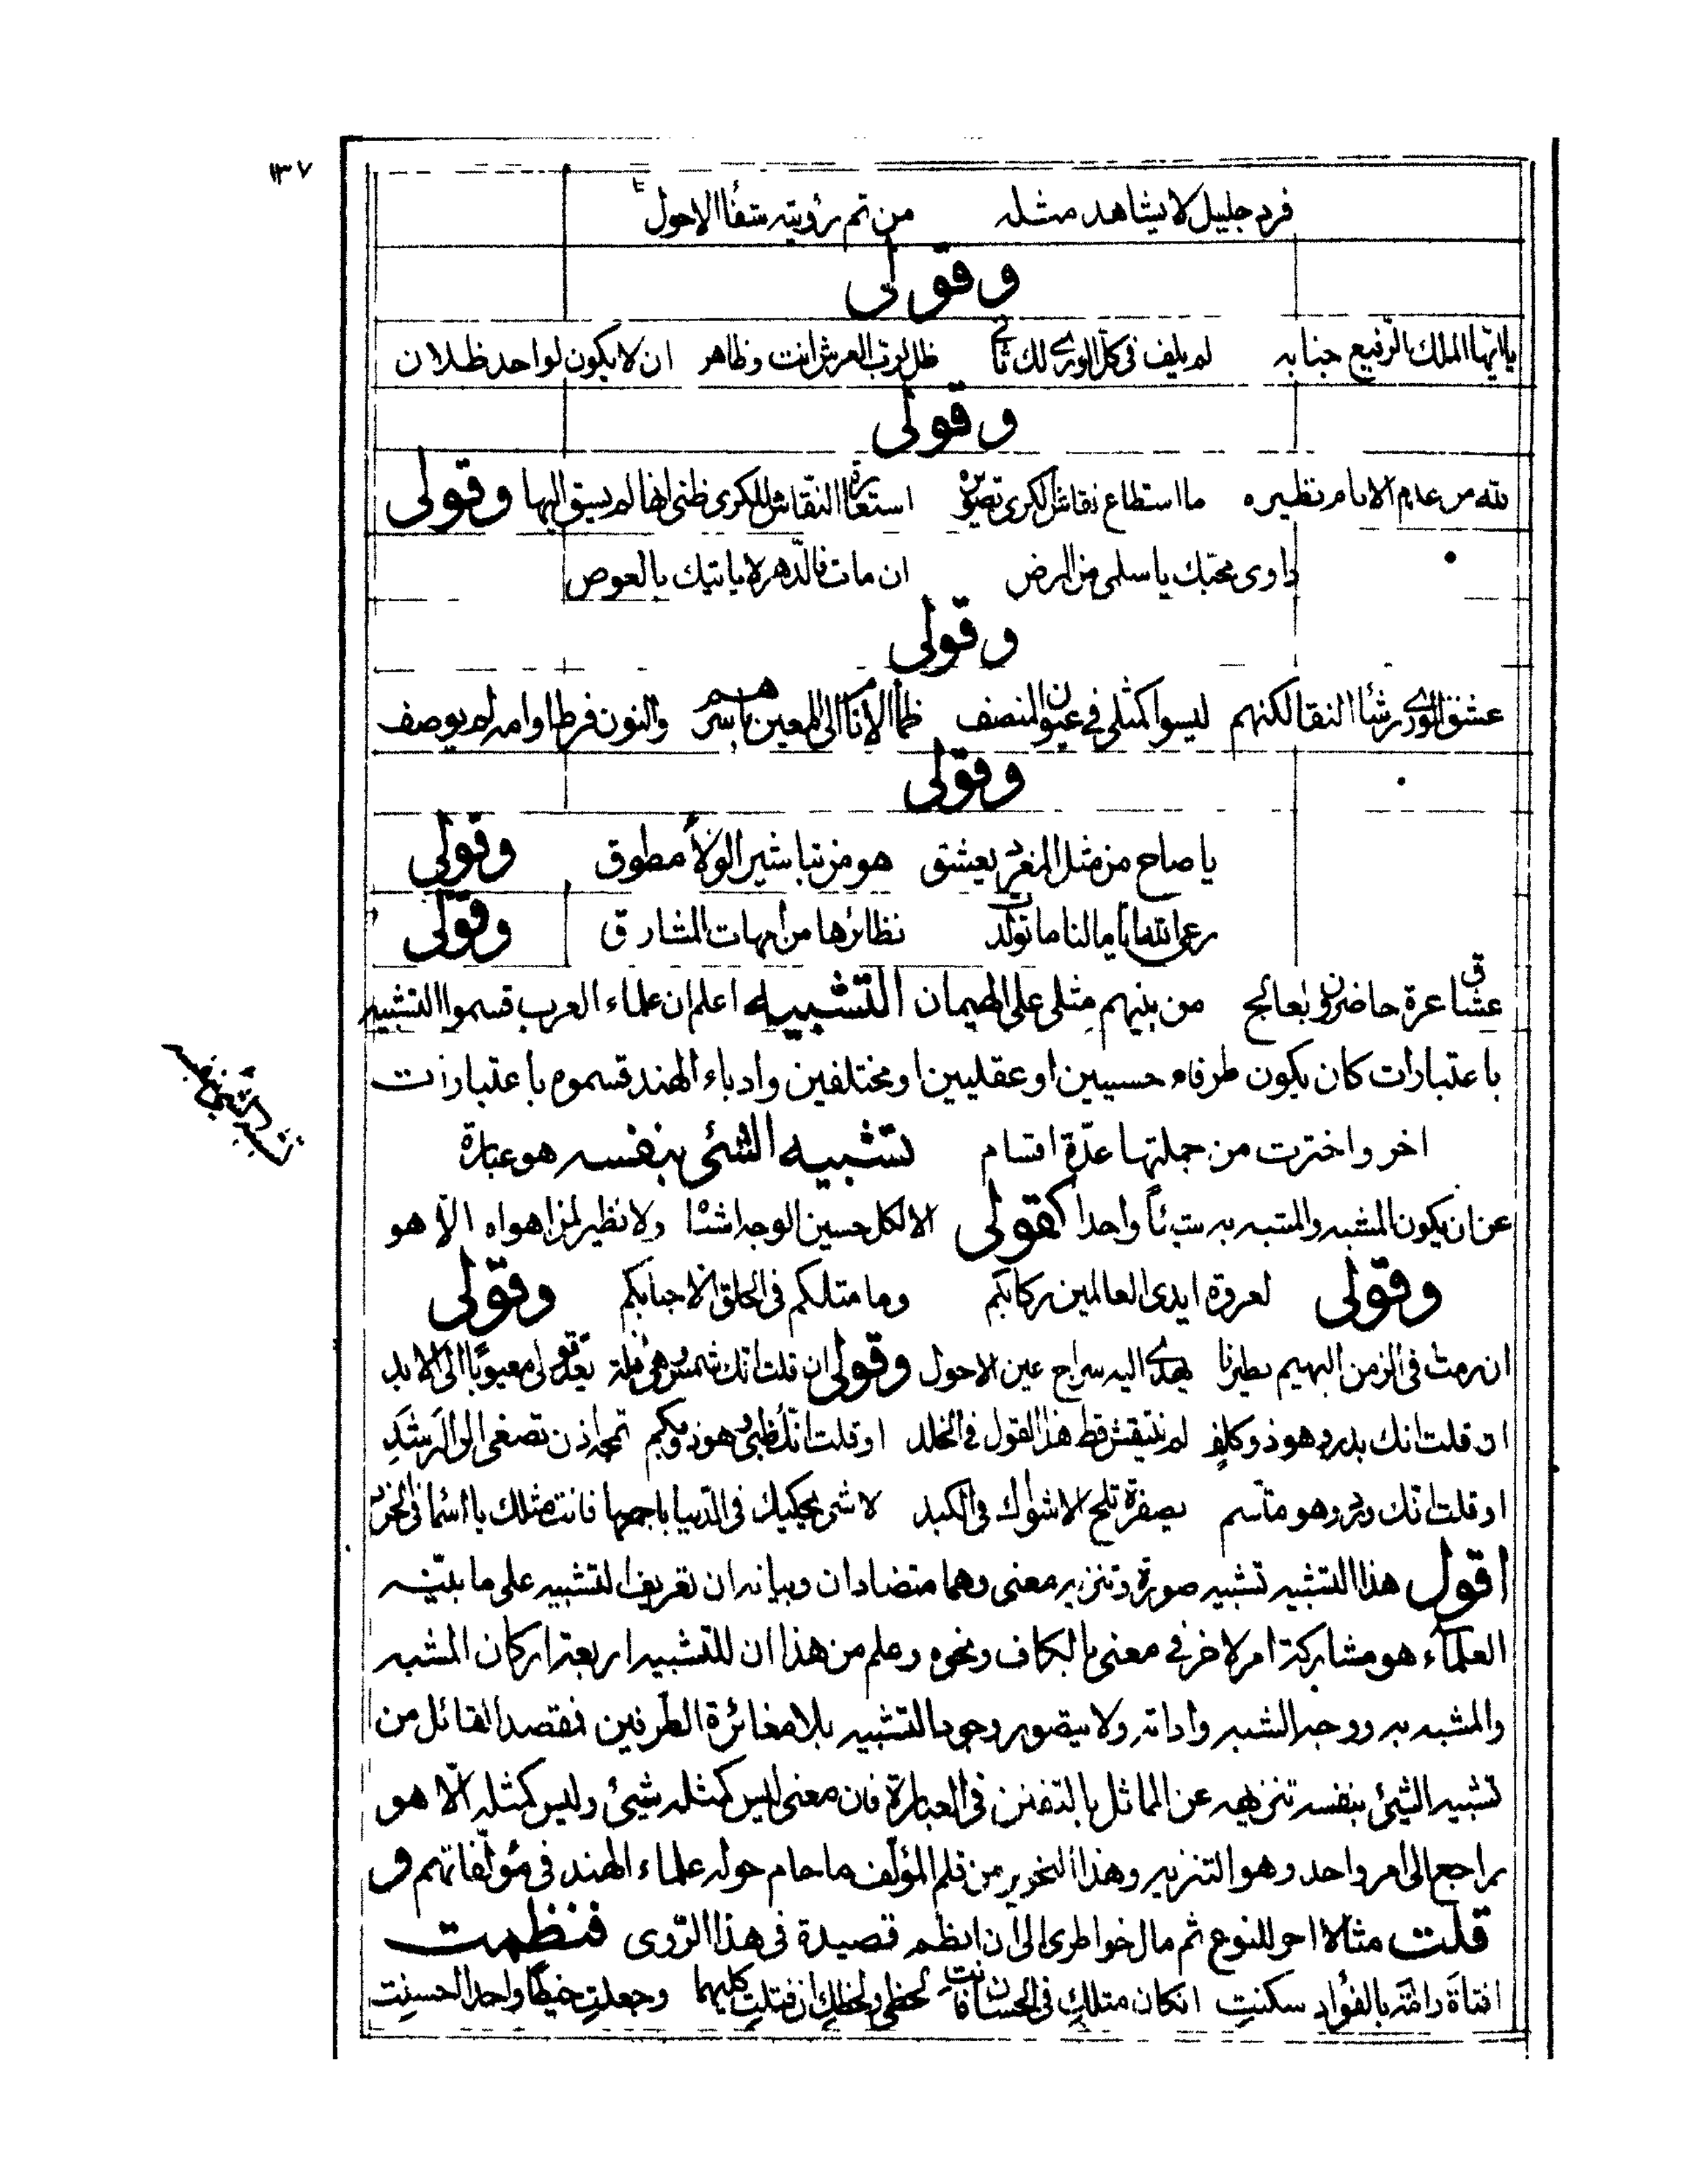 ١٣٧
فرد جليل لا يشاهد مثله من تم رؤيته شفاء الاحول
وقولى
يا ايها الملك الرفيع جنابه لم يلف فى كل الورى لك ثانى ظل لرب العرش انت وظاهر ان لا يكون لواحد ظلان
وقولى
لله من عدم الانام نظيره ما استطاع نقاش الكرى تصويره استعارة النقاش للكرى ظنى انها لم يسبق اليها وقولى
داوى محبك يا سلمى من المرض ان مات فالدهر لا ياتيك بالعوض
وقولى
عشق الورى رشأ النقا لكنهم ليسوا كمثلى فى عيون المنصف ظمأ الانام الى المعين باسرهم والنون فرط اوامه لم يوصف
وقولى
يا صاح من مثل المغرد يعشق هو من تباشير الولاء مطوق وقولى
رعى الله اياما لنا ما تولدت نظائرها من امهات المشارق وقولى
عشاق عزة حاضرون بعالج من بينهم مثلى على الهيمان التشبيه اعلم ان علماء العرب قسموا التشبيه
باعتبارات كان يكون طرفاه حسيين او عقليين او مختلفين وادباء الهند قسموه باعتبارات
اخر واخترت من جملتها عدّة اقسام تشبيه الشئ بنفسه هو عبارة
عن ان يكون المشبه والمشبه به شيئاً واحدا كقولى الا لكل حسين الوجه اشباه ولا نظير لمن اهواه الا هو
وقولى لعروة ايدى العالمين ركابكم وما مثلكم فى الخلق الا جنابكم وقولى
ان رمت فى الزمن البهيم نظيرنا يهدى اليه سراج عين الاحول وقولى ان قلت انك شمس وهى فلة يعد قولى معيوبًا الى الابد
ان قلت انك بدر وهو ذو كلف لم ينتقش قط هذا القول فى الخلد او قلت انك ظبى وهو ذو بكم تمجه اذن تصغى الى الرشد
او قلت انك ورد وهو متسم بصفرة تلج الاشواك فى الكبد لا شئ يحكيك فى الدنيا باجمعها فانت مثلك يا اسماء فى الخرد
اقول هذا التشبيه تشبيه صورة وتنزيه معنى وهما متضادان وبيانه ان تعريف التشبيه على ما بيّنه
العلماء هو مشاركة امر لاخر فى معنى بالكاف ونحوه وعلم من هذا ان للتشبيه اربعة اركان المشبه
والمشبه به ووجه الشبه واداته ولا يتصور وجود التشبيه بلا مغائرة الطرفين فقصد القائل من
تشبيه الشئ بنفسه تنزيهه عن المماثل بالتفنن فى العبارة فان معنى ليس كمثله شيئ وليس كمثله الّا هو
راجع الى امر واحد وهو التنزيه وهذا التحرير من قلم المؤلف ما حام حوله علماء الهند فى مؤلفاتهم و
قلت مثالا اخر للنوع ثم مال خواطرى الى ان انظم قصيدة فى هذا الروى فنظمت
افتاة رامة بالفؤاد سكنتِ انكان مثلكِ فى الحسان فانتِ لحظى ولحظكِ ان فتلتِ كليهما وجعلتِ خيطًا واحدا لحسنتِ